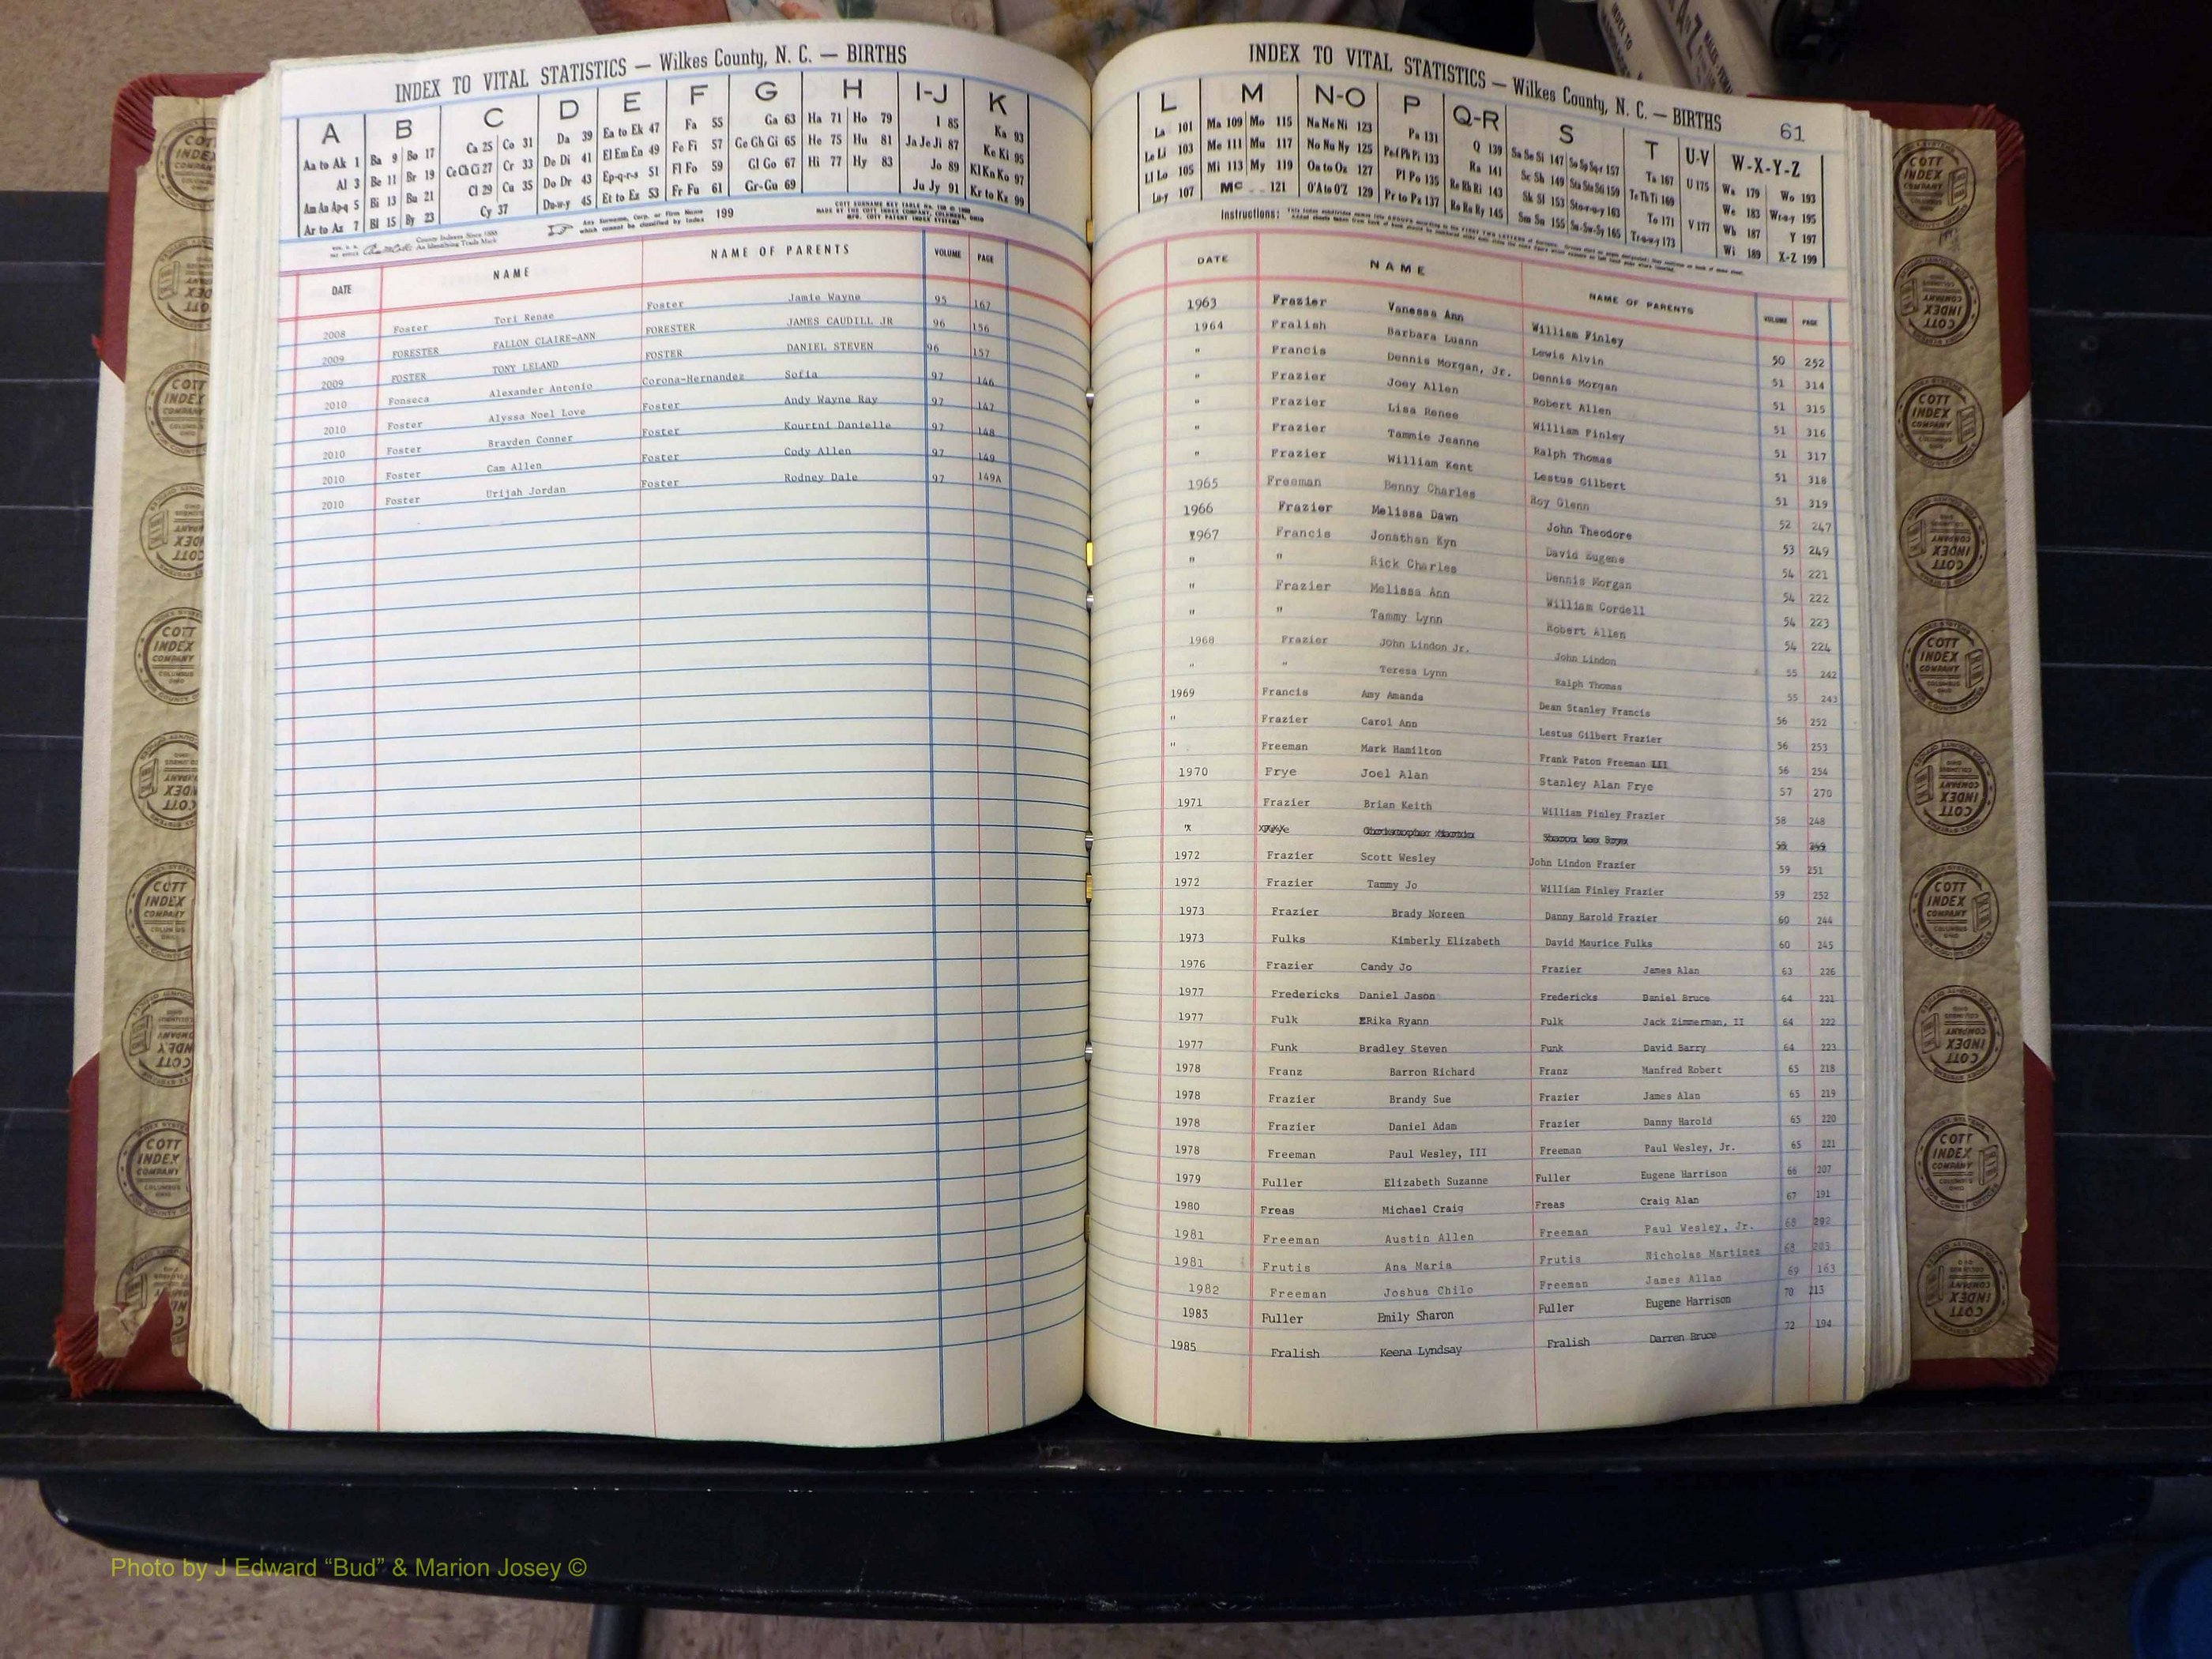 INDEX TO VITAL STATISTICS — Wilkes County, N. C. — BIRTHS
A B C D E F G H I-J K
Aa to Ak 1 Ba 9 Bo 17 Ca 25 Co 31 Da 39 Ea to Ek 47 Fa 55 Ga 63 Ha 71 Ho 79 I 85 Ka 93
Al 3 Be 11 Br 19 Ce Ch Ci 27 Cr 33 De Di 41 El Em En 49 Fe Fi 57 Ge Gh Gi 65 He 75 Hu 81 Ja Je Ji 87 Ke Ki 95
Am An Ap-q 5 Bi 13 Bu 21 Cl 29 Cu 35 Do Dr 43 Ep-q-r-s 51 Fl Fo 59 Gl Go 67 Hi 77 Hy 83 Jo 89 Kl Kn Ko 97
Ar to Az 7 Bl 15 By 23 Cy 37 Du-w-y 45 Et to Ez 53 Fr Fu 61 Gr-Gu 69 Ju Jy 91 Kr to Kz 99
Any Surname, Corp. or Firm Name which cannot be classified by Index 199
DATE NAME NAME OF PARENTS VOLUME PAGE
2008 Foster Tori Renae Foster Jamie Wayne 95 167
2009 FORESTER FALLON CLAIRE-ANN FORESTER JAMES CAUDILL JR 96 156
2009 FOSTER TONY LELAND FOSTER DANIEL STEVEN 96 157
2010 Fonseca Alexander Antonio Corona-Hernandez Sofia 97 146
2010 Foster Alyssa Noel Love Foster Andy Wayne Ray 97 147
2010 Foster Brayden Conner Foster Kourtni Danielle 97 148
2010 Foster Cam Allen Foster Cody Allen 97 149
2010 Foster Urijah Jordan Foster Rodney Dale 97 149A
INDEX TO VITAL STATISTICS — Wilkes County, N. C. — BIRTHS 61
L M N-O P Q-R S T U-V W-X-Y-Z
La 101 Ma 109 Mo 115 Na Ne Ni 123 Pa 131 Q 139 Sa Se Si 147 Ta 167 U 175 Wa 179 Wo 193
Le Li 103 Me 111 Mu 117 No Nu Ny 125 Pe-f Ph Pi 133 Ra 141 Sc Sh 149 Te Th Ti 169 We 183 Wr-u-y 195
Ll Lo 105 Mi 113 My 119 Oa to Oz 127 Pl Po 135 Re Rh Ri 143 Sk Sl 153 To 171 V 177 Wh 187 Y 197
Lu-y 107 Mc 121 O'A to O'Z 129 Pr to Pz 137 Ro Ru Ry 145 Sm Sn 155 Su-Sw-Sy 165 Tr-u-w-y 173 Wi 189 X-Z 199
Instructions:
DATE NAME NAME OF PARENTS VOLUME PAGE
1963 Frazier Vanessa Ann William Finley 50 252
1964 Fralish Barbara Luann Lewis Alvin 51 314
" Francis Dennis Morgan, Jr. Dennis Morgan 51 315
" Frazier Joey Allen Robert Allen 51 316
" Frazier Lisa Renee William Finley 51 317
" Frazier Tammie Jeanne Ralph Thomas 51 318
" Frazier William Kent Lestus Gilbert 51 319
1965 Freeman Benny Charles Roy Glenn 52 247
1966 Frazier Melissa Dawn John Theodore 53 249
1967 Francis Jonathan Kyn David Eugene 54 221
" " Rick Charles Dennis Morgan 54 222
" Frazier Melissa Ann William Cordell 54 223
" " Tammy Lynn Robert Allen 54 224
1968 Frazier John Lindon Jr. John Lindon 55 242
" " Teresa Lynn Ralph Thomas 55 243
1969 Francis Amy Amanda Dean Stanley Francis 56 252
" Frazier Carol Ann Lestus Gilbert Frazier 56 253
" Freeman Mark Hamilton Frank Paton Freeman III 56 254
1970 Frye Joel Alan Stanley Alan Frye 57 270
1971 Frazier Brian Keith William Finley Frazier 58 248
1972 Frazier Scott Wesley John Lindon Frazier 59 251
1972 Frazier Tammy Jo William Finley Frazier 59 252
1973 Frazier Brady Noreen Danny Harold Frazier 60 244
1973 Fulks Kimberly Elizabeth David Maurice Fulks 60 245
1976 Frazier Candy Jo Frazier James Alan 63 226
1977 Fredericks Daniel Jason Fredericks Daniel Bruce 64 221
1977 Fulk ERika Ryann Fulk Jack Zimmerman, II 64 222
1977 Funk Bradley Steven Funk David Barry 64 223
1978 Franz Barron Richard Franz Manfred Robert 65 218
1978 Frazier Brandy Sue Frazier James Alan 65 219
1978 Frazier Daniel Adam Frazier Danny Harold 65 220
1978 Freeman Paul Wesley, III Freeman Paul Wesley, Jr. 65 221
1979 Fuller Elizabeth Suzanne Fuller Eugene Harrison 66 207
1980 Freas Michael Craig Freas Craig Alan 67 191
1981 Freeman Austin Allen Freeman Paul Wesley, Jr. 68 202
1981 Frutis Ana Maria Frutis Nicholas Martinez 68 203
1982 Freeman Joshua Chilo Freeman James Allan 69 163
1983 Fuller Emily Sharon Fuller Eugene Harrison 70 213
1985 Fralish Keena Lyndsay Fralish Darren Bruce 72 194
COTT INDEX COMPANY COLUMBUS OHIO
Photo by J Edward “Bud” & Marion Josey ©